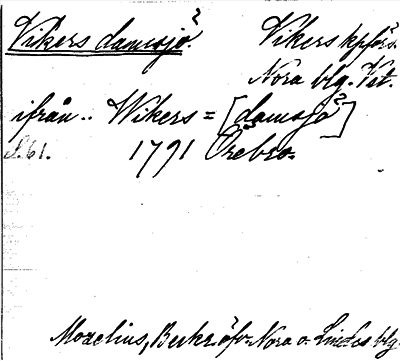 Vikers damsjö? Vikers kpförs.
Nora blg. Vst.
ifrån .. Wikers = [damsjö?]
s. 61. 1791 Örebro.
Moxelius, Beskr. öfv. Nora o. Lindes blg.